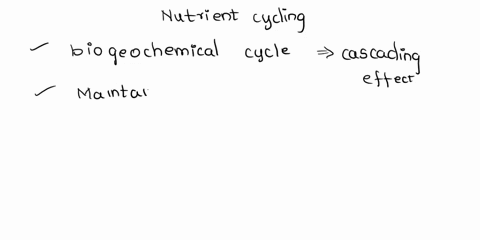 Nutrient cycling
✓ biogeochemical cycle ⇒ cascading
effect
✓ Maintai